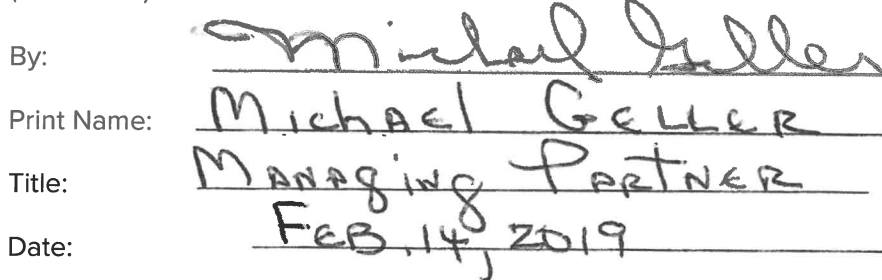 By: Michael Geller
Print Name: Michael GELLER
Title: Managing Partner
Date: FEB.14, 2019